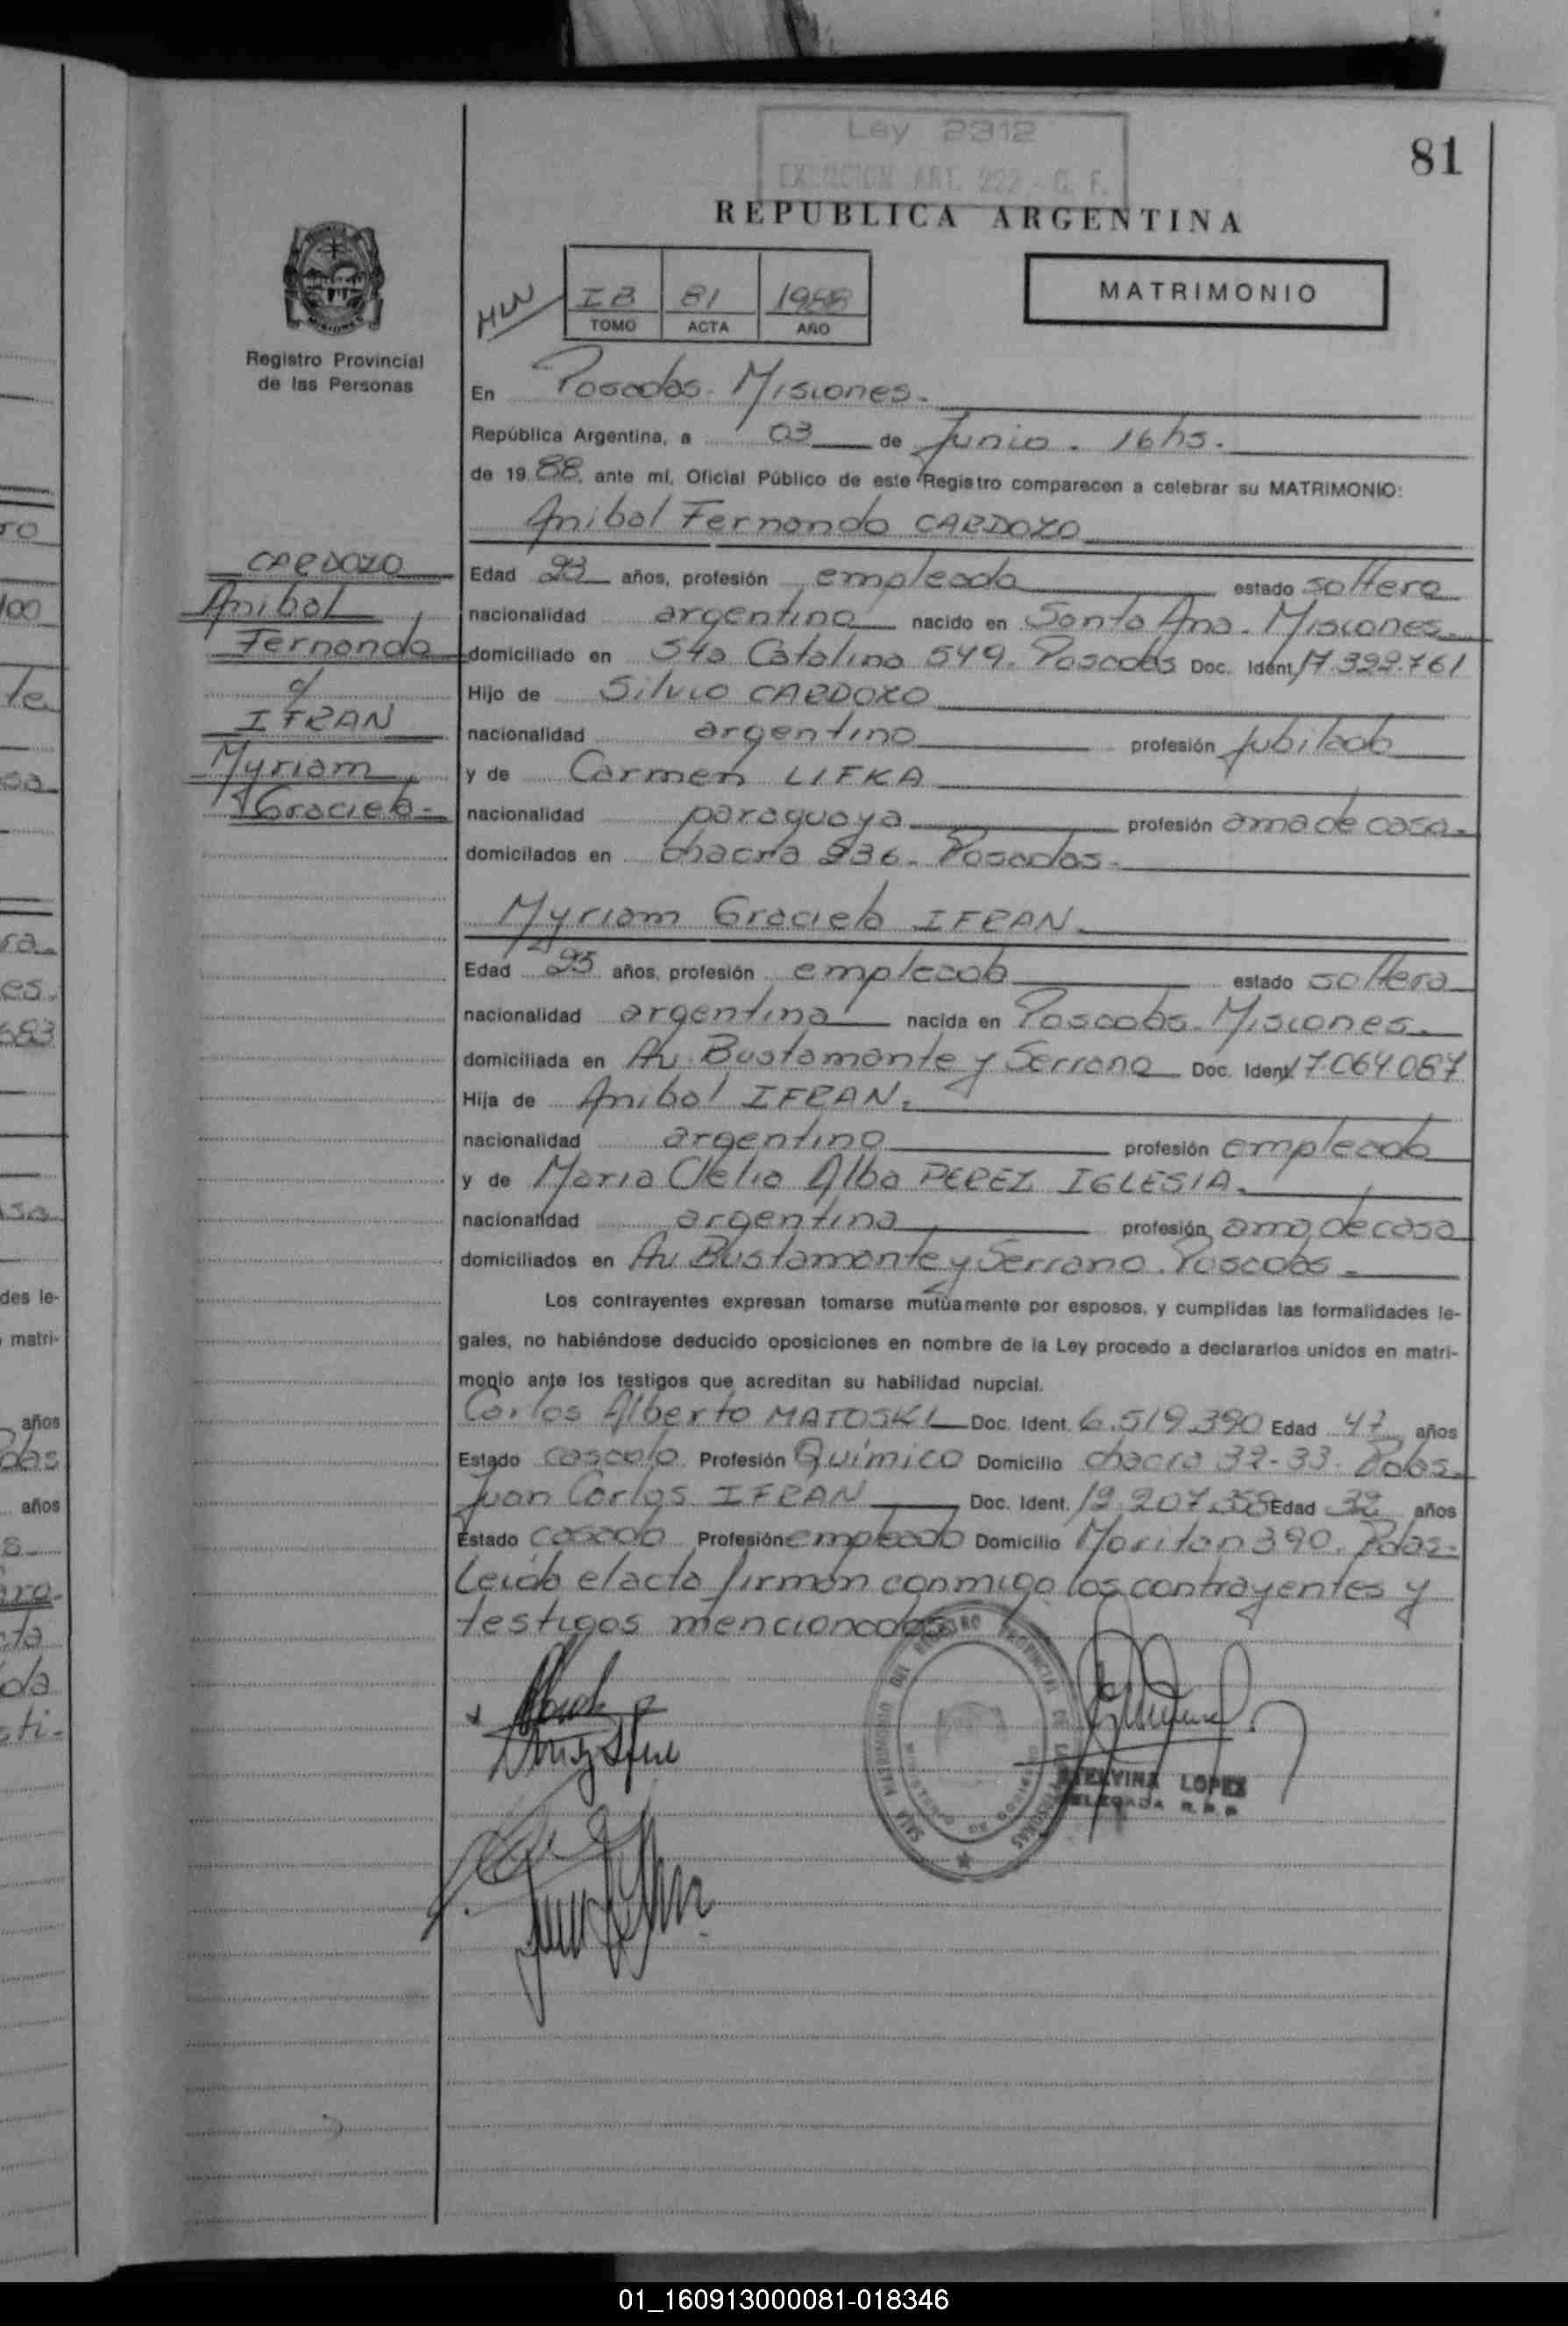 Ley 2312
EXENCION ART. 222 - C. F.
81
REPUBLICA ARGENTINA
MATRIMONIO
IB 81 1988
TOMO ACTA AÑO
MISIONES
Registro Provincial
de las Personas
En Posadas. Misiones.
República Argentina, a 03 de Junio. 16hs.
de 19 88, ante mí, Oficial Público de este Registro comparecen a celebrar su MATRIMONIO:
Anibal Fernando CARDOZO
CARDOZO
Anibal
Fernando
c/
IFRAN
Myriam
Graciela-
Edad 23 años, profesión empleado estado soltero
nacionalidad argentino nacido en Santa Ana. Misiones.
domiciliado en Sta Catalina 549. Posadas Doc. Ident. 17.392.761
Hijo de Silvio CARDOZO
nacionalidad argentino profesión jubilado
y de Carmen LIFKA
nacionalidad paraguaya profesión ama de casa.
domicilados en chacra 236. Posadas.
Myriam Graciela IFRAN.
Edad 23 años, profesión empleada estado soltera
nacionalidad argentina nacida en Posadas. Misiones.
domiciliada en Av. Bustamante y Serrano Doc. Ident. 17.064.087
Hija de Anibal IFRAN.
nacionalidad argentino profesión empleado
y de Maria Clelia Alba PEREZ IGLESIA.
nacionalidad argentina profesión ama de casa
domiciliados en Av Bustamante y Serrano. Posadas.
Los contrayentes expresan tomarse mutuamente por esposos, y cumplidas las formalidades le-
gales, no habiéndose deducido oposiciones en nombre de la Ley procedo a declararlos unidos en matri-
monio ante los testigos que acreditan su habilidad nupcial.
Carlos Alberto MATOSKI Doc. Ident. 6.519.390 Edad 47 años
Estado casado Profesión Químico Domicilio chacra 32-33. Pdas.
Juan Carlos IFRAN Doc. Ident. 12.207.358 Edad 32 años
Estado casado Profesión empleado Domicilio Moritan 390. Pdas-
Leída el acta firman conmigo los contrayentes y
testigos mencionados
ETELVINA LOPEZ
DELEGADA R.P.P
01_160913000081-018346